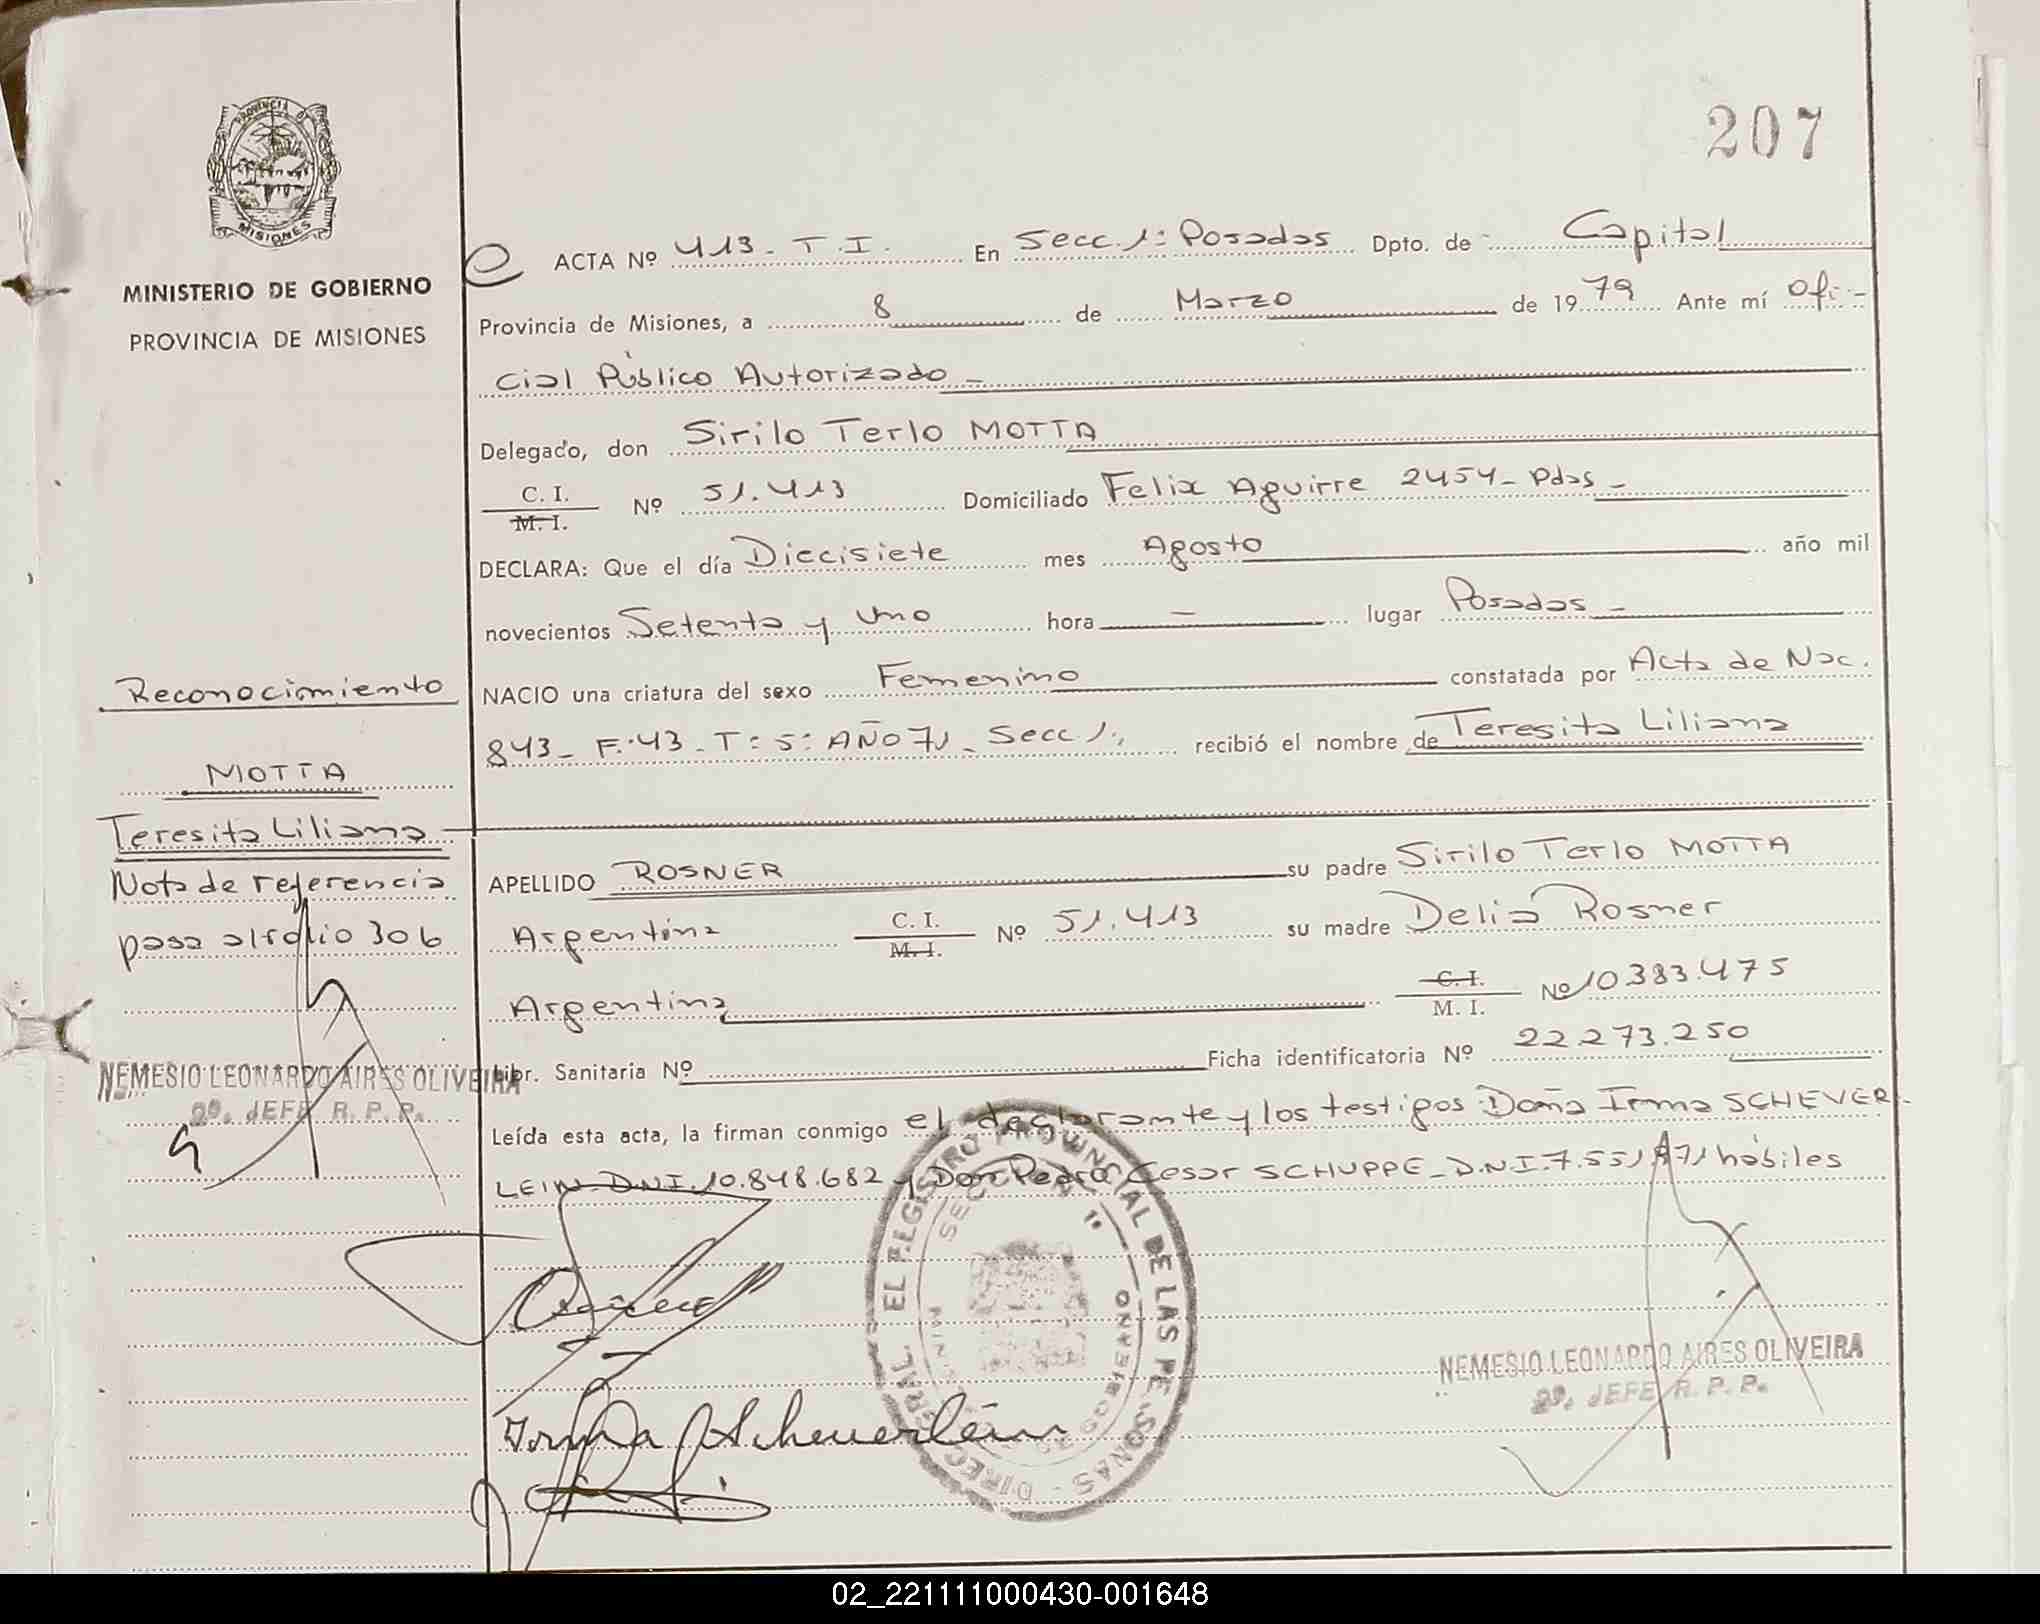 207
PROVINCIA DE
MISIONES
MINISTERIO DE GOBIERNO
PROVINCIA DE MISIONES
ACTA Nº 413 - T.I. En Secc. 1: Posadas Dpto. de Capital
Provincia de Misiones, a 8 de Marzo de 1979 Ante mí Ofi-
cial Público Autorizado -
Delegado, don Sirilo Terlo MOTTA
C. I.
M. I.
Nº 51.413 Domiciliado Felix Aguirre 2454 - Pdas -
DECLARA: Que el día Diecisiete mes Agosto año mil
novecientos Setenta y Uno hora — lugar Posadas -
NACIO una criatura del sexo Femenino constatada por Acta de Nac.
843 - F: 43 - T: 5: AÑO 71 - Secc 1:, recibió el nombre de Teresita Liliana
Reconocimiento
MOTTA
Teresita Liliana
Nota de referencia
pasa al folio 306
APELLIDO ROSNER su padre Sirilo Terlo MOTTA
Argentina C. I. M. I. Nº 51.413 su madre Delia Rosner
Argentina C. I. M. I. Nº 10.383.475
Libr. Sanitaria Nº Ficha identificatoria Nº 22 273.250
NEMESIO LEONARDO AIRES OLIVEIRA
2º. JEFE R. P. P.
Leída esta acta, la firman conmigo el declarante y los testigos Doña Irma SCHEVER-
LEIN D.N.I. 10.848.682 y Don Pedro Cesar SCHUPPE - D.N.I. 7.551.871 hábiles
Irma Scheuerlein
NEMESIO LEONARDO AIRES OLIVEIRA
2º. JEFE R. P. P.
02_221111000430-001648